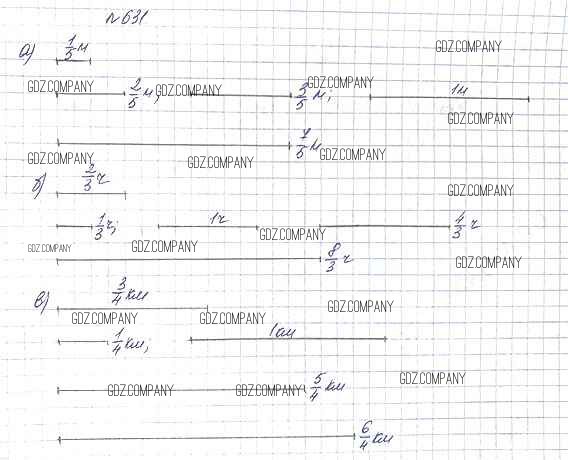 №631
а) 1/5 м GDZ.COMPANY
GDZ.COMPANY 2/5 м, GDZ.COMPANY GDZ.COMPANY 3/5 м; 1м
GDZ.COMPANY
7/5 м
GDZ.COMPANY GDZ.COMPANY GDZ.COMPANY
б) 2/3 ч GDZ.COMPANY
1/3 ч; 1ч GDZ.COMPANY 4/3 ч
GDZ.COMPANY GDZ.COMPANY 8/3 ч GDZ.COMPANY
в) 3/4 км GDZ.COMPANY
GDZ.COMPANY GDZ.COMPANY
1/4 км, 1км
GDZ.COMPANY GDZ.COMPANY 5/4 км GDZ.COMPANY
6/4 км